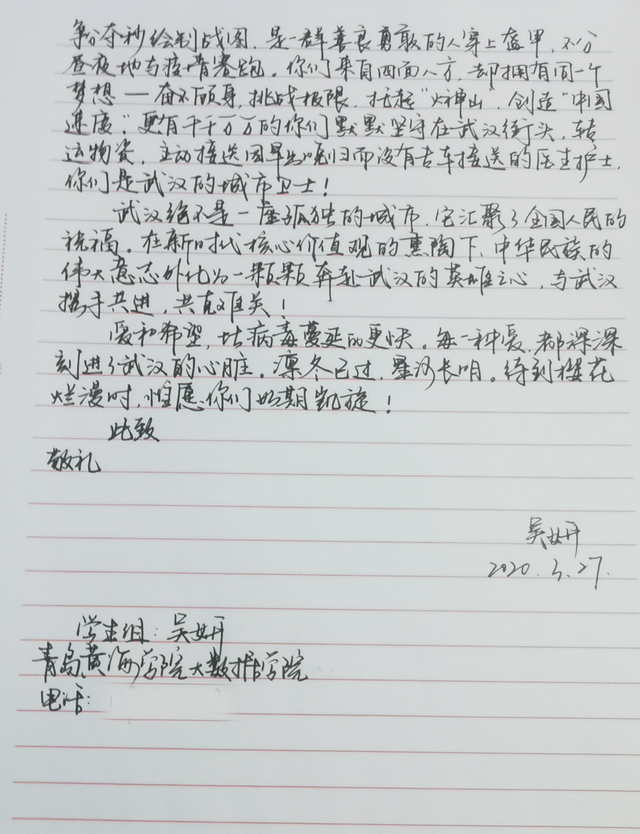 争分夺秒绘制战图，是一群善良勇敢的人穿上盔甲，不分
昼夜地与疫情赛跑。你们来自四面八方，却拥有同一个
梦想——奋不顾身，挑战极限，托起“火神山，创造“中国
速度”。更有千千万万的你们默默坚守在武汉街头，转
运物资，主动接送因早出晚归而没有专车接送的医生护士，
你们是武汉的城市卫士！
武汉绝不是一座孤独的城市，它汇聚了全国人民的
祝福。在新时代核心价值观的熏陶下，中华民族的
伟大意志外化为一颗颗奔赴武汉的英雄之心，与武汉
携手共进，共克难关！
爱和希望，比病毒蔓延的更快。每一种爱，都深深
刻进了武汉的心脏。凛冬已过，星河长明。待到樱花
烂漫时，惟愿你们如期凯旋！
此致
敬礼
吴妍
2020.3.27.
学生组：吴妍
青岛黄海学院大数据学院
电话：